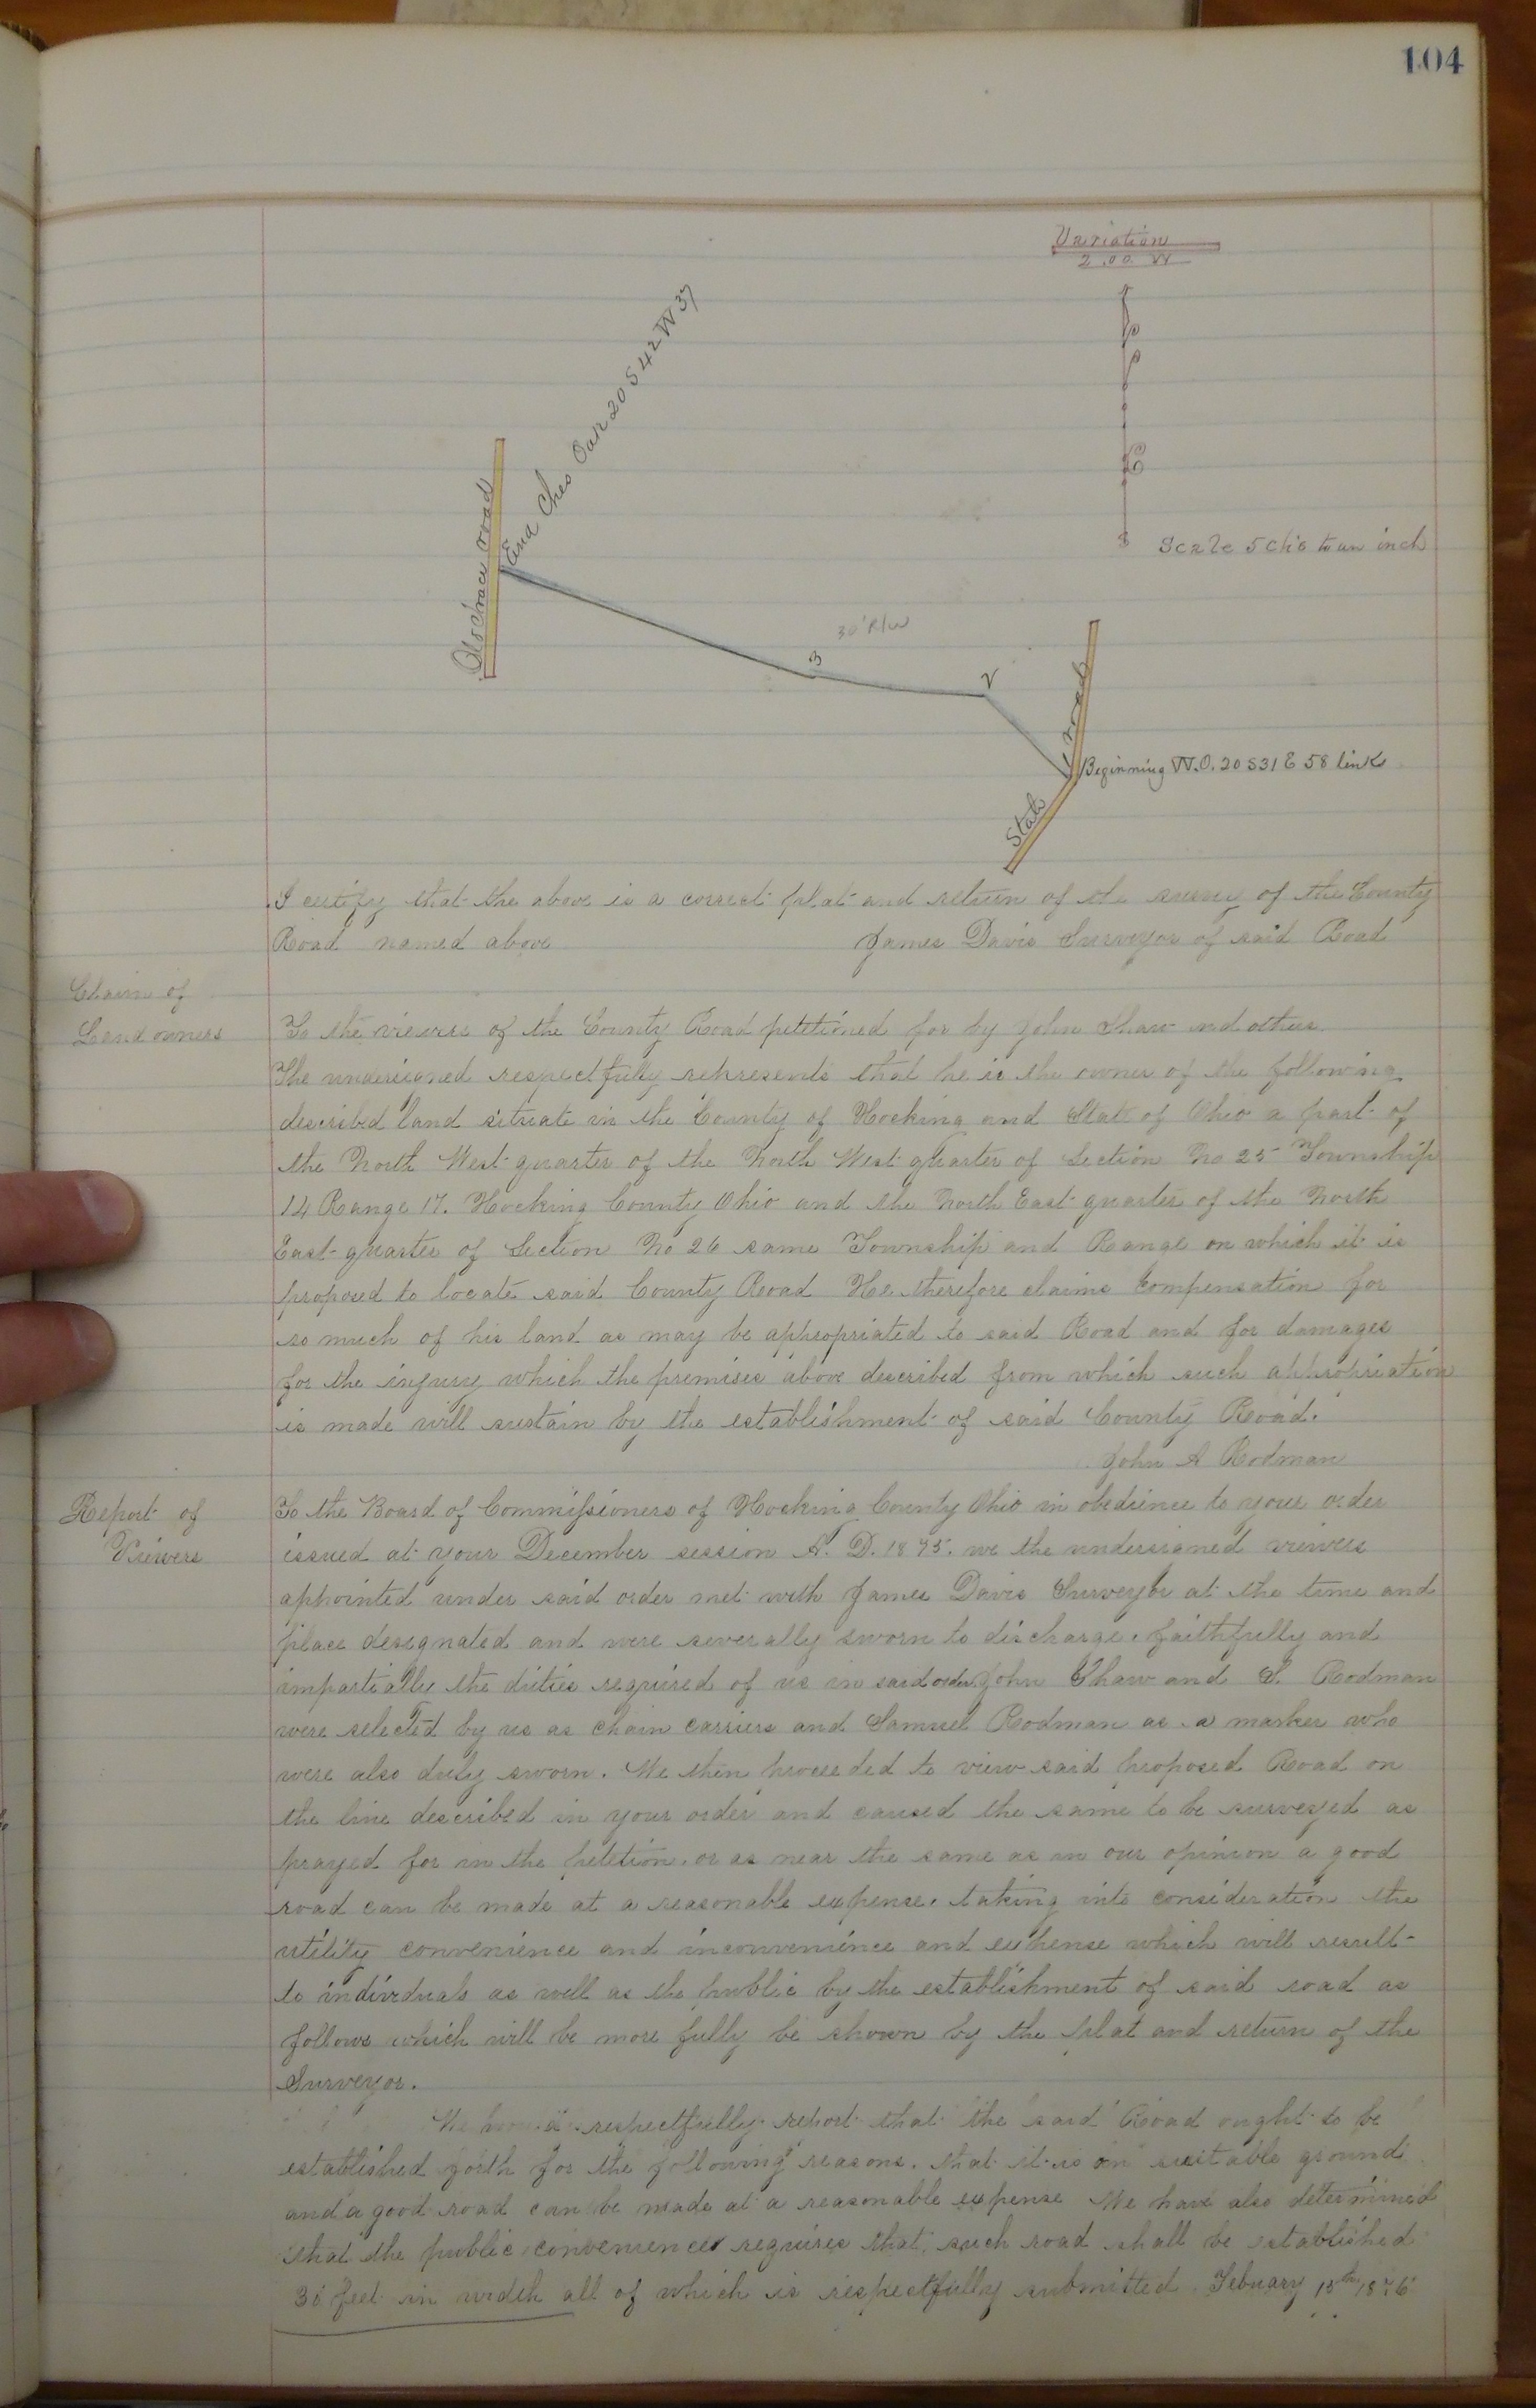 104
Variation
2.00 W
End Ches Oak 20 S 42 W 37
road
Scale 5 chs to an inch
30' R/W
3
2
State road
Beginning W.O. 20 S31 E 58 links
I certify that the above is a correct plat and return of the survey of the County
Road named above James Davis Surveyor of said Road
Claim of
Land owners
To the viewers of the County Road petitioned for by John Shaw and others
The undersigned respectfully represents that he is the owner of the following
described land situate in the County of Hocking and State of Ohio a part of
the North West quarter of the North West quarter of Section No 25 Township
14 Range 17. Hocking County Ohio and the North East quarter of the North
East quarter of Section No 26 same Township and Range on which it is
proposed to locate said County Road He therefore claims compensation for
so much of his land as may be appropriated to said Road and for damages
for the injury which the premises above described from which such appropriation
is made will sustain by the establishment of said County Road.
John A Rodman
Report of
Viewers
To the Board of Commissioners of Hocking County Ohio in obedience to your order
issued at your December session A. D. 1875. we the undersigned viewers
appointed under said order met with James Davis Surveyor at the time and
place designated and were severally sworn to discharge faithfully and
impartially the duties required of us in said order John Shaw and S. Rodman
were selected by us as chain carriers and Samuel Rodman as a marker who
were also duly sworn. We then proceeded to view said proposed Road on
the line described in your order and caused the same to be surveyed as
prayed for in the petition. or as near the same as in our opinion a good
road can be made at a reasonable expense. taking into consideration the
utility convenience and inconvenience and expense which will result
to individuals as well as the public by the establishment of said road as
follows which will be more fully be shown by the plat and return of the
Surveyor.
We respectfully report that the said Road ought to be
established forth for the following reasons. that it is on suitable ground
and a good road can be made at a reasonable expense We have also determined
that the public convenience requires that such road shall be established
30 feet in width all of which is respectfully submitted. Febuary 15th 1876